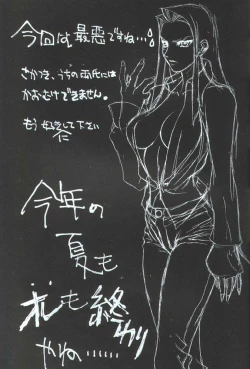 今回は最悪ですね…
さかきさん、うちの両氏には
かおむけできません。
もう好きにして下さい
今年の
夏も
オレも終わり
やね……